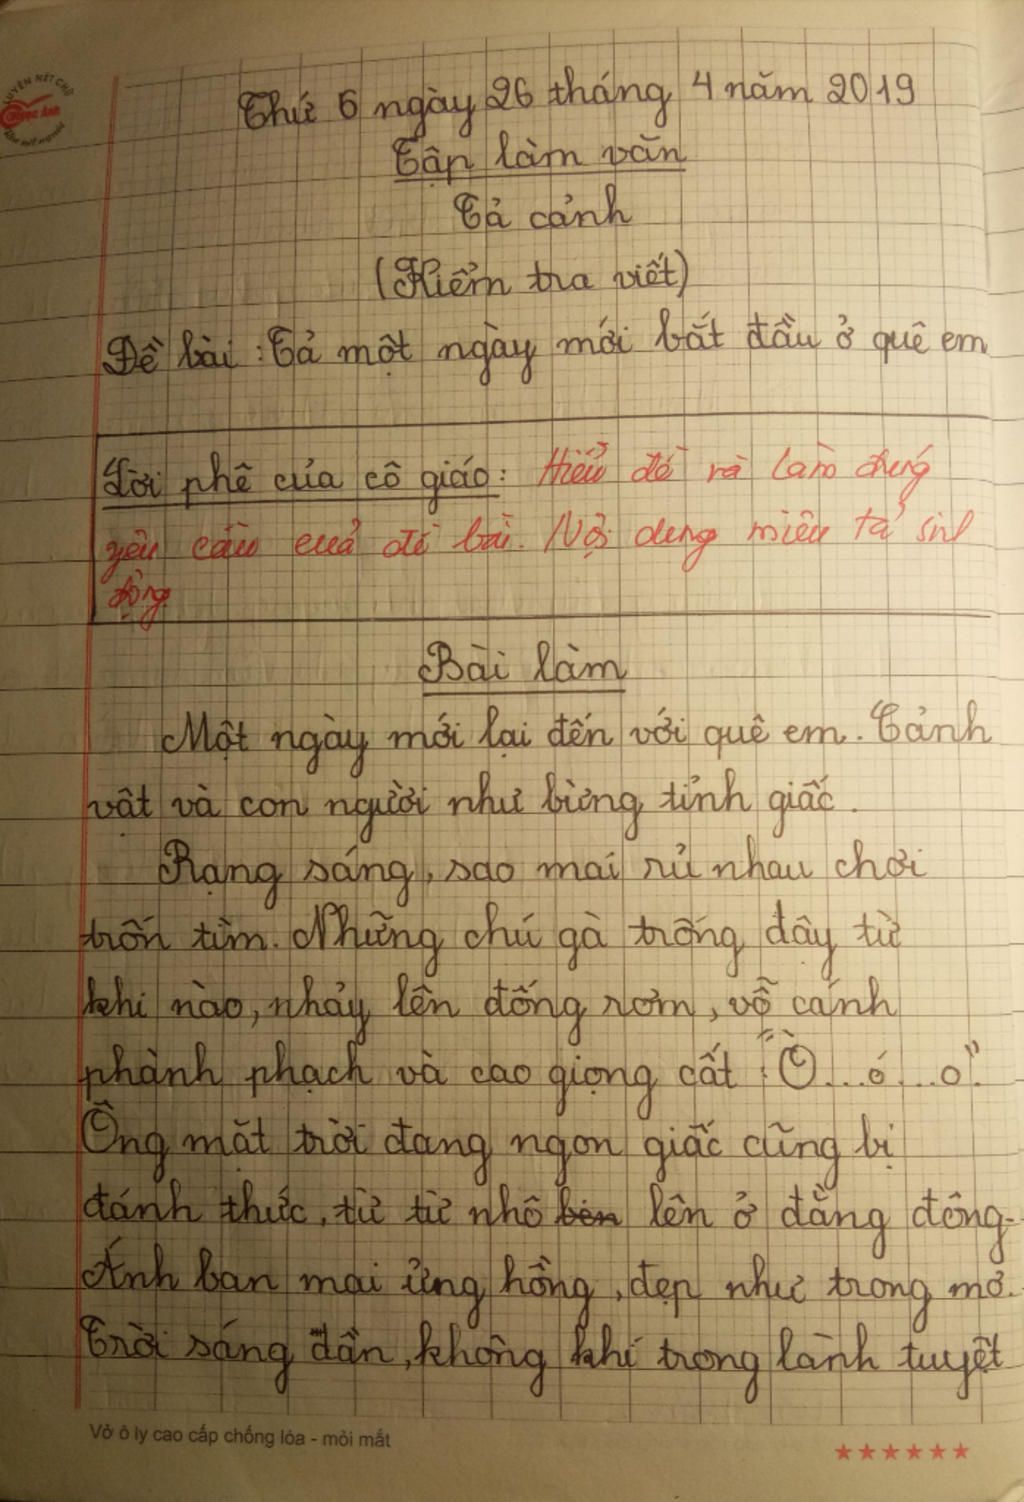 LUYỆN NÉT CHỮ
Thứ 6 ngày 26 tháng 4 năm 2019
Tập làm văn
Tả cảnh
(Kiểm tra viết)
Đề bài : Tả một ngày mới bắt đầu ở quê em
Lời phê của cô giáo : Hiểu đề và làm đúng
yêu cầu của đề bài. Nội dung miêu tả sinh
động.
Bài làm
Một ngày mới lại đến với quê em. Cảnh
vật và con người như bừng tỉnh giấc.
Rạng sáng, sao mai rủ nhau chơi
trốn tìm. Những chú gà trống đây từ
khi nào, nhảy lên đống rơm, vỗ cánh
phành phạch và cao giọng cất : "Ò...ó...o".
Ông mặt trời đang ngon giấc cũng bị
đánh thức, từ từ nhô lên ở đằng đông.
Ánh ban mai ửng hồng, đẹp như trong mơ.
Trời sáng dần, không khí trong lành tuyệt
Vở ô ly cao cấp chống lóa - mỏi mắt